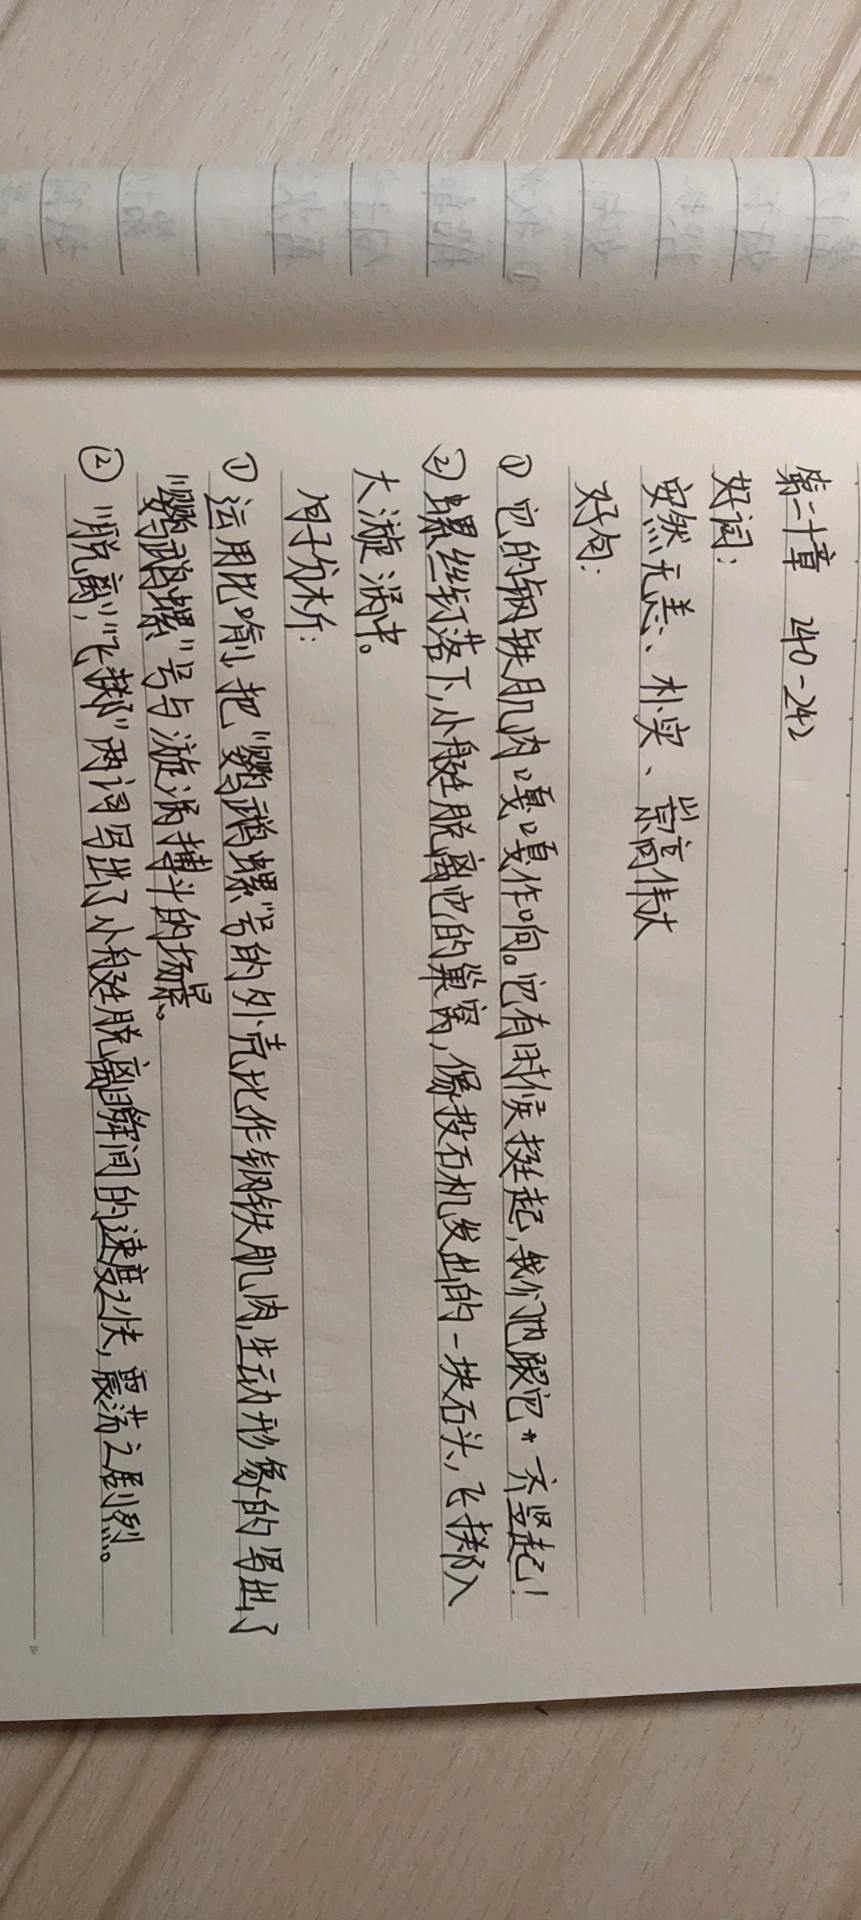 第二十章 240-242
好词：
安然无恙、朴实、崇高伟大
好句：
① 它的钢铁肌肉嘎嘎作响。它有时候挺起，我们也跟它一齐竖起！
② 螺丝钉落下，小艇脱离它的巢窝，像投石机发出的一块石头，飞掷入
大漩涡中。
句子分析：
① 运用比喻，把“鹦鹉螺”号的外壳比作钢铁肌肉，生动形象的写出了
“鹦鹉螺”号与漩涡搏斗的场景。
② “脱离”，“飞掷”两词写出了小艇脱离瞬间的速度之快，震荡之剧烈。